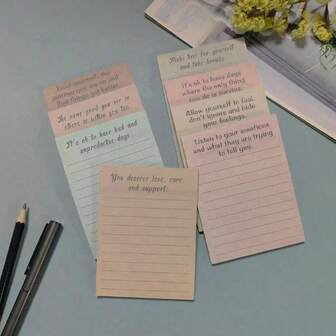 Trust yourself, the
and find things get better.
The same good you see in
others is within you too.
It's ok to have bad and
unproductive days.
You deserve love, care
and support.
Make time for yourself
and take breaks.
It's ok to have days
where the only thing
you do is survive.
Allow yourself to feel,
don't ignore and hide
your feelings.
Listen to your emotions
and what they are trying
to tell you.